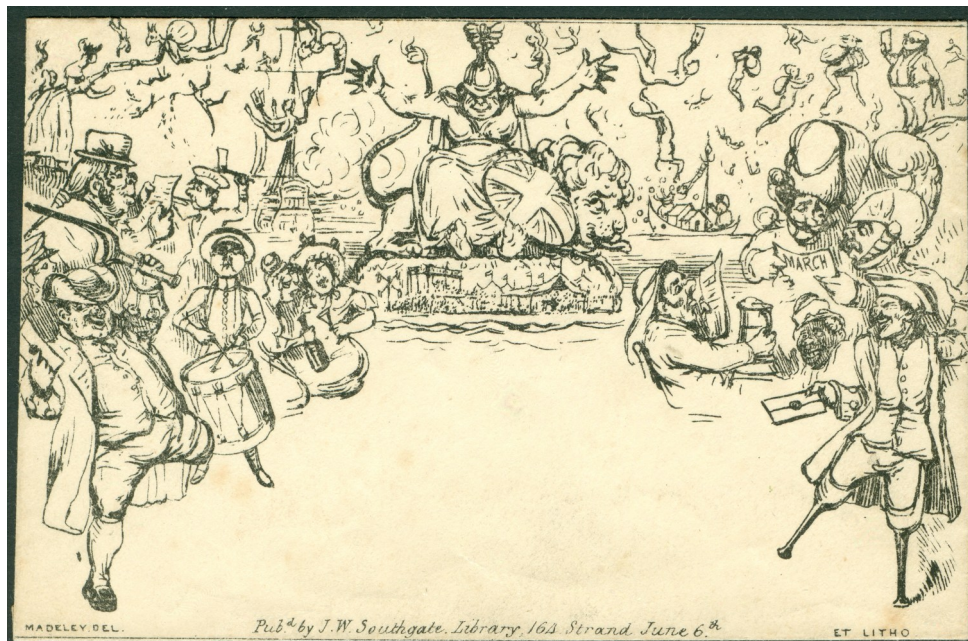 MARCH
MADELEY. DEL.
Pub.d by J.W. Southgate. Library, 164 Strand June 6.th
ET LITHO